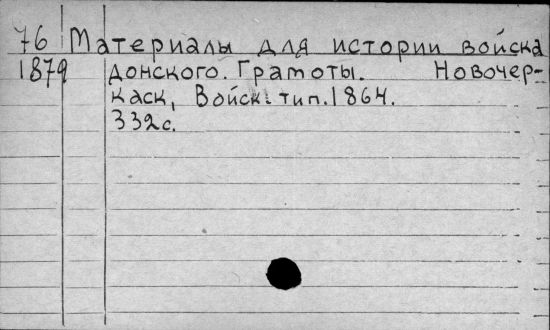 76 Материалы для истории войска
1879 донского. Грамоты. Новочер-
каск, Войск. тип. 1864.
332с.